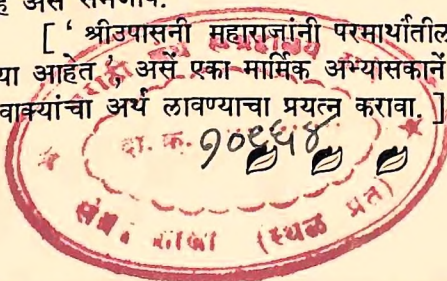 हे असे समजावे.
[ ‘ श्रीउपासनी महाराजांनी परमार्थातील
या आहेत ’, असें एका मार्मिक अभ्यासकानें
वाक्यांचा अर्थ लावण्याचा प्रयत्न करावा. ]
दा. क. १०६६४
(स्थळ प्रत)